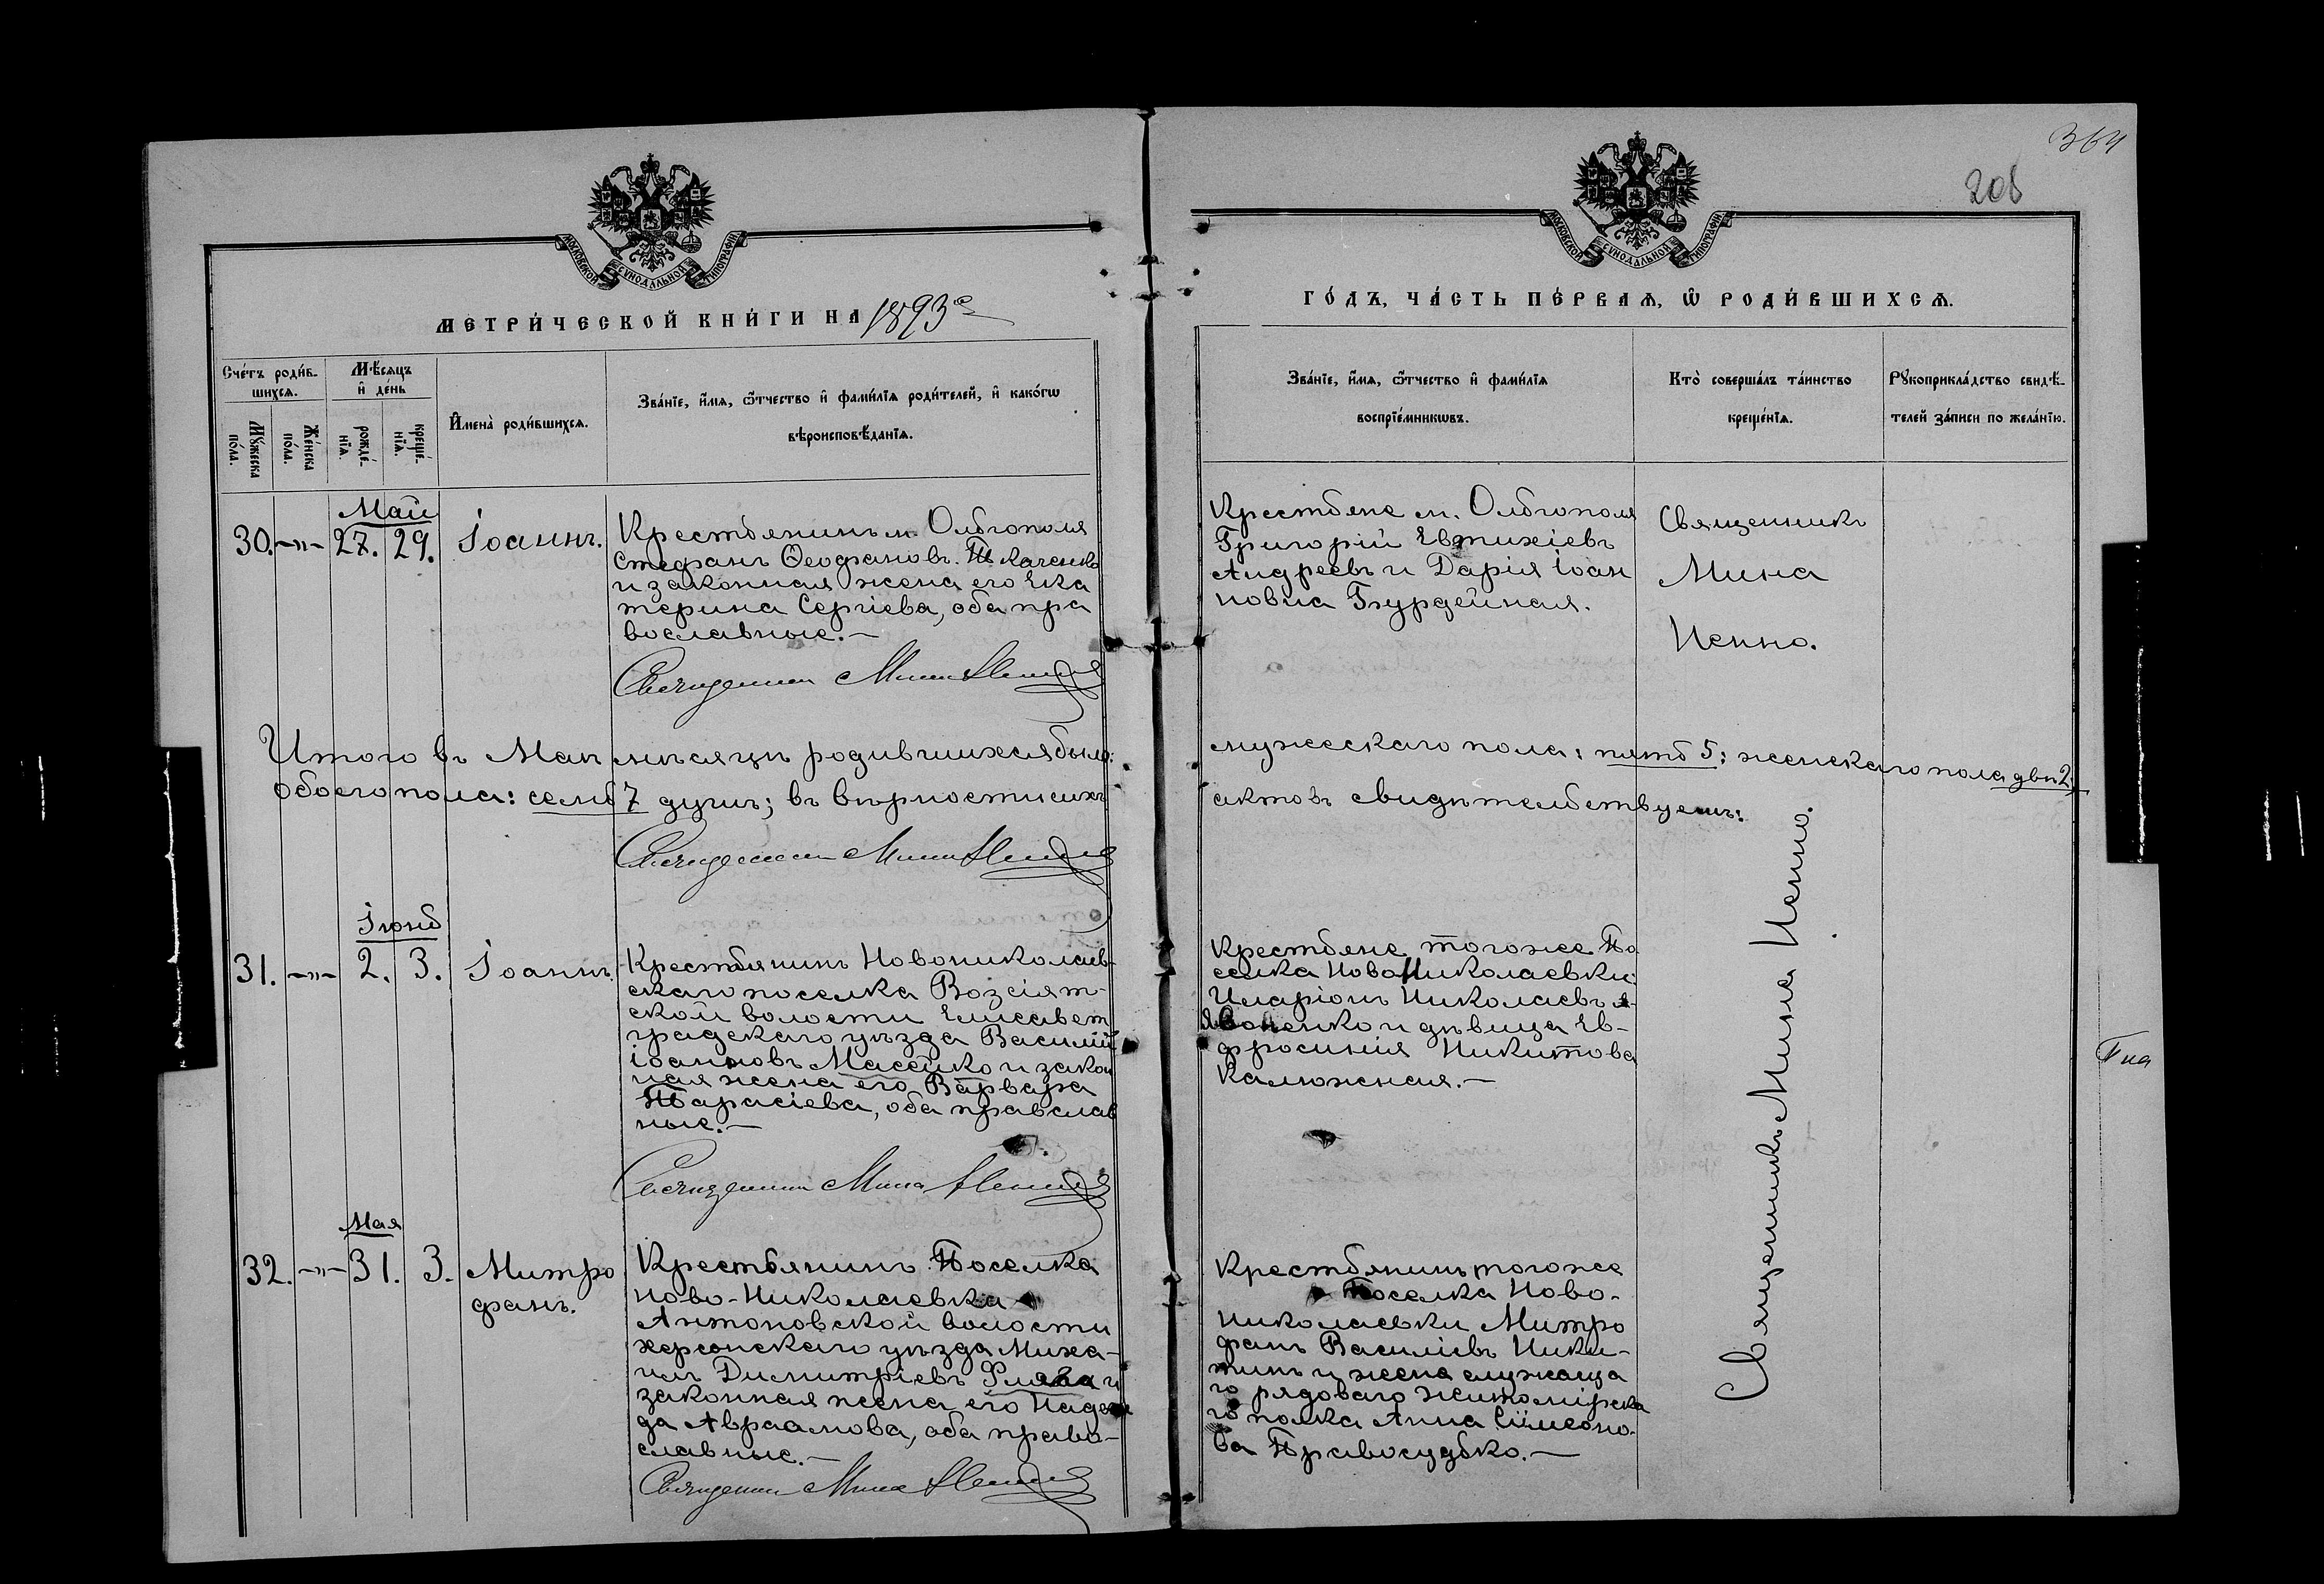 364
208
МОСКОВСКОЙ СѴНОДАЛЬНОЙ ТИПОГРАФІИ
МОСКОВСКОЙ СѴНОДАЛЬНОЙ ТИПОГРАФІИ
МЕТРИ́ЧЕСКОЙ КНИ́ГИ НА 1893 е
ГО́ДЪ, ЧА́СТЬ ПЕ́РВАѦ, Ѡ҆ РОДИ́ВШИХСѦ.
Сче́тъ роди́в-
шихсѧ.
Мꙋ́жеска по́ла.
Же́нска по́ла.
Мѣ́сѧцъ
и҆ де́нь
рожде́-
нїѧ.
креще́-
нїѧ.
И҆мена̀ роди́вшихсѧ.
Зва́нїе, и҆́мѧ, ѻ҆́тчество и҆ фами́лїѧ роди́телей, и҆ како́гѡ
вѣроисповѣ́данїѧ.
Зва́нїе, и҆́мѧ, ѻ҆́тчество и҆ фами́лїѧ
воспрїе́мникѡвъ.
Кто̀ соверша́лъ та́инство
креще́нїѧ.
Рꙋкоприкла́дство свидѣ́-
телей за́писи по жела́нїю.
Май
30. -„- 27. 29. Іоаннъ.
Крестьянинъ м. Ольгополя
Стефанъ Ѳеофановъ Ткаченко
и законная жена его Ека
терина Сергіева, оба пра
вославные.—
Священник Мина Ненно
Крестьяне м. Ольгополя
Григорій Евтихіевъ
Андреевъ и Дарія Іоан
новна Бурдейная.
Священникъ
Мина
Ненно.
Итого въ Маѣ мѣсяцѣ родившихся было: мужескаго пола: пять 5: женскаго пола двѣ 2;
обоего пола: семь 7 душъ; въ вѣрности сихъ актовъ свидѣтельствуемъ:
Священник Мина Ненно
Іюнь
31. -„- 2. 3. Іоаннъ.
Крестьянинъ Новониколаев-
скаго поселка Возсіят-
ской волости Елисавет
градскаго уѣзда Василій
Іоанновъ Масейко и закон
ная жена его Варвара
Тарасіева, обаправслав
ные.—
Священник Мина Ненно
Крестьяне тогоже По
селка НовоНиколаевки:
Иларіонъ Николаевъ
и дѣвица Ев-
фросинія Никитова
Каложная.—
Священникъ Мина Ненно.
Гна
Мая
32. -„- 31. 3. Митро
фанъ.
Крестьянинъ Поселка
Ново-Николаевка
Антоновской волости
херсонскаго уѣзда Миха-
илъ Димитріевъ и
законная жена его Надеж
да Авраамова, оба право-
славные.—
Священник Мина Ненно
Крестьянинъ тогоже
Поселка Ново-
николаевки Митро
фанъ Василіевъ Ники-
тинъ и жена служаща
го рядоваго Житомірска
го полка Анна Сімеоно-
ва Правосудько.—